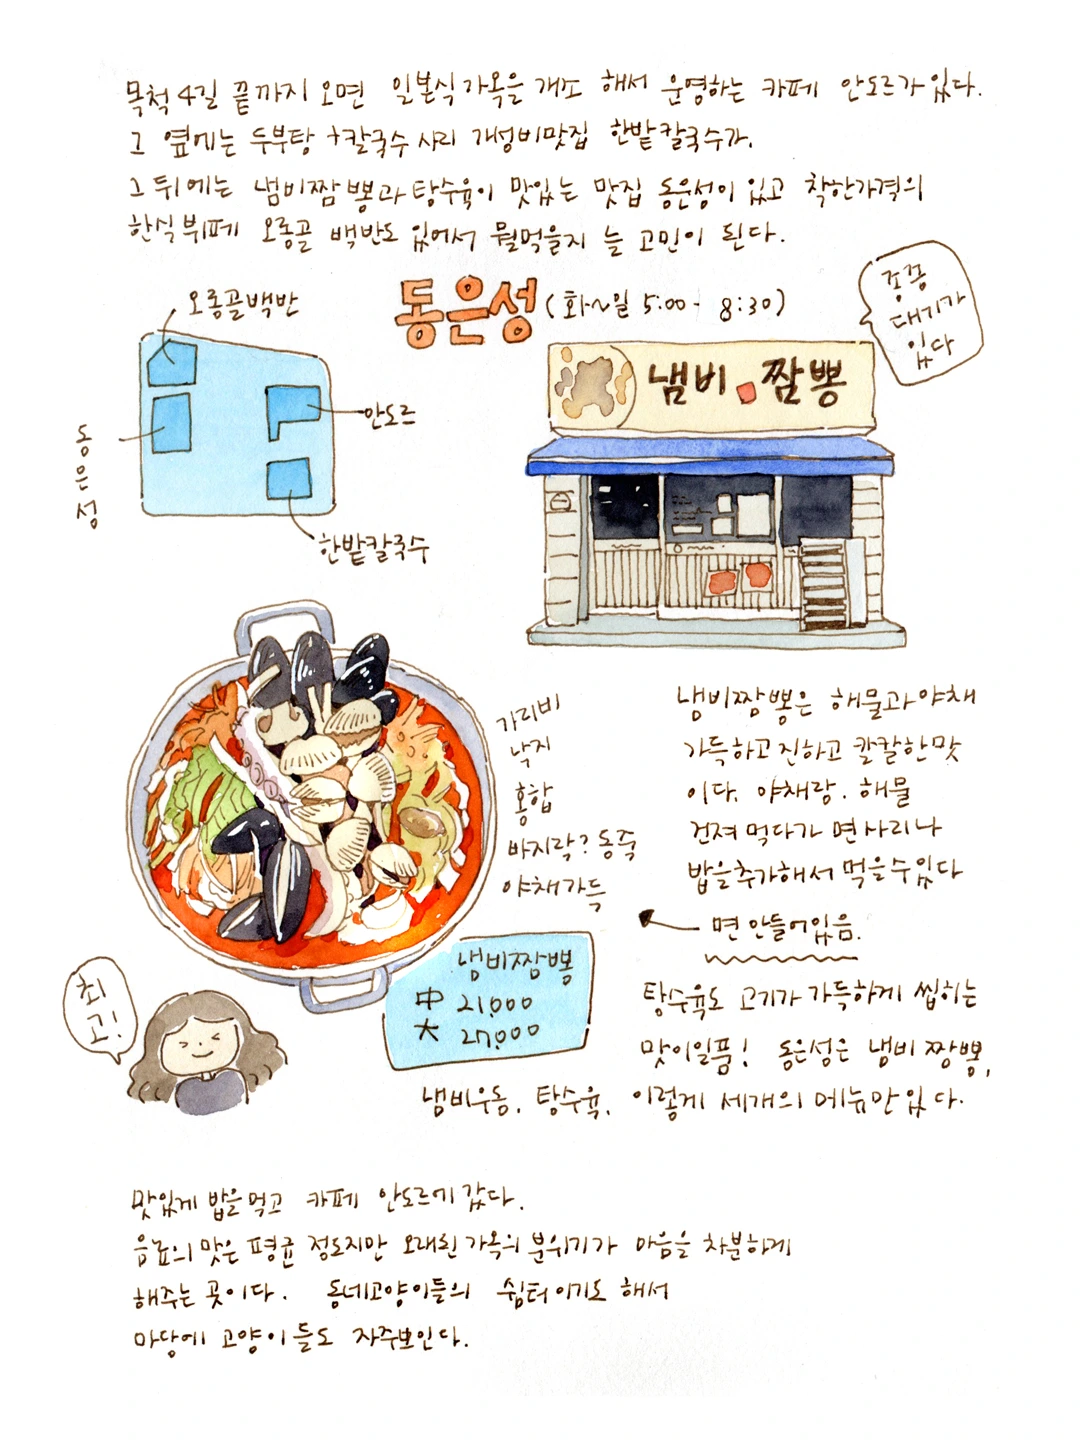 목척 4길 끝까지 오면 일본식 가옥을 개조 해서 운영하는 카페 안도르가 있다.
그 옆에는 두부탕 +칼국수 사리 개성비맛집 한밭칼국수가,
그 뒤에는 냄비짬뽕과 탕수육이 맛있는 맛집 동은성이 있고 착한가격의
한식뷔페 오롱골 백반도 있어서 뭘먹을지 늘 고민이 된다.
오롱골백반
동은성 (화~일 5:00 - 8:30)
종종
대기가
있다
냄비 짬뽕
안도르
동은성
한밭칼국수
가리비
낙지
홍합
바지락? 동죽
야채가득
냄비짬뽕은 해물과야채
가득하고 진하고 칼칼한맛
이다. 야채랑. 해물
건져 먹다가 면사리나
밥을추가해서 먹을수있다
면 안들어있음.
냄비짬뽕
中 21,000
大 27,000
최
고!
탕수육도 고기가 가득하게 씹히는
맛이일품! 동은성은 냄비 짱뽕,
냄비우동, 탕수육, 이렇게 세개의 메뉴만있다.
맛있게 밥을먹고 카페 안도르에 갔다.
음료의 맛은 평균 정도지만 오래된 가옥의 분위기가 마음을 차분하게
해주는 곳이다. 동네고양이들의 쉼터이기도 해서
마당에 고양이들도 자주보인다.